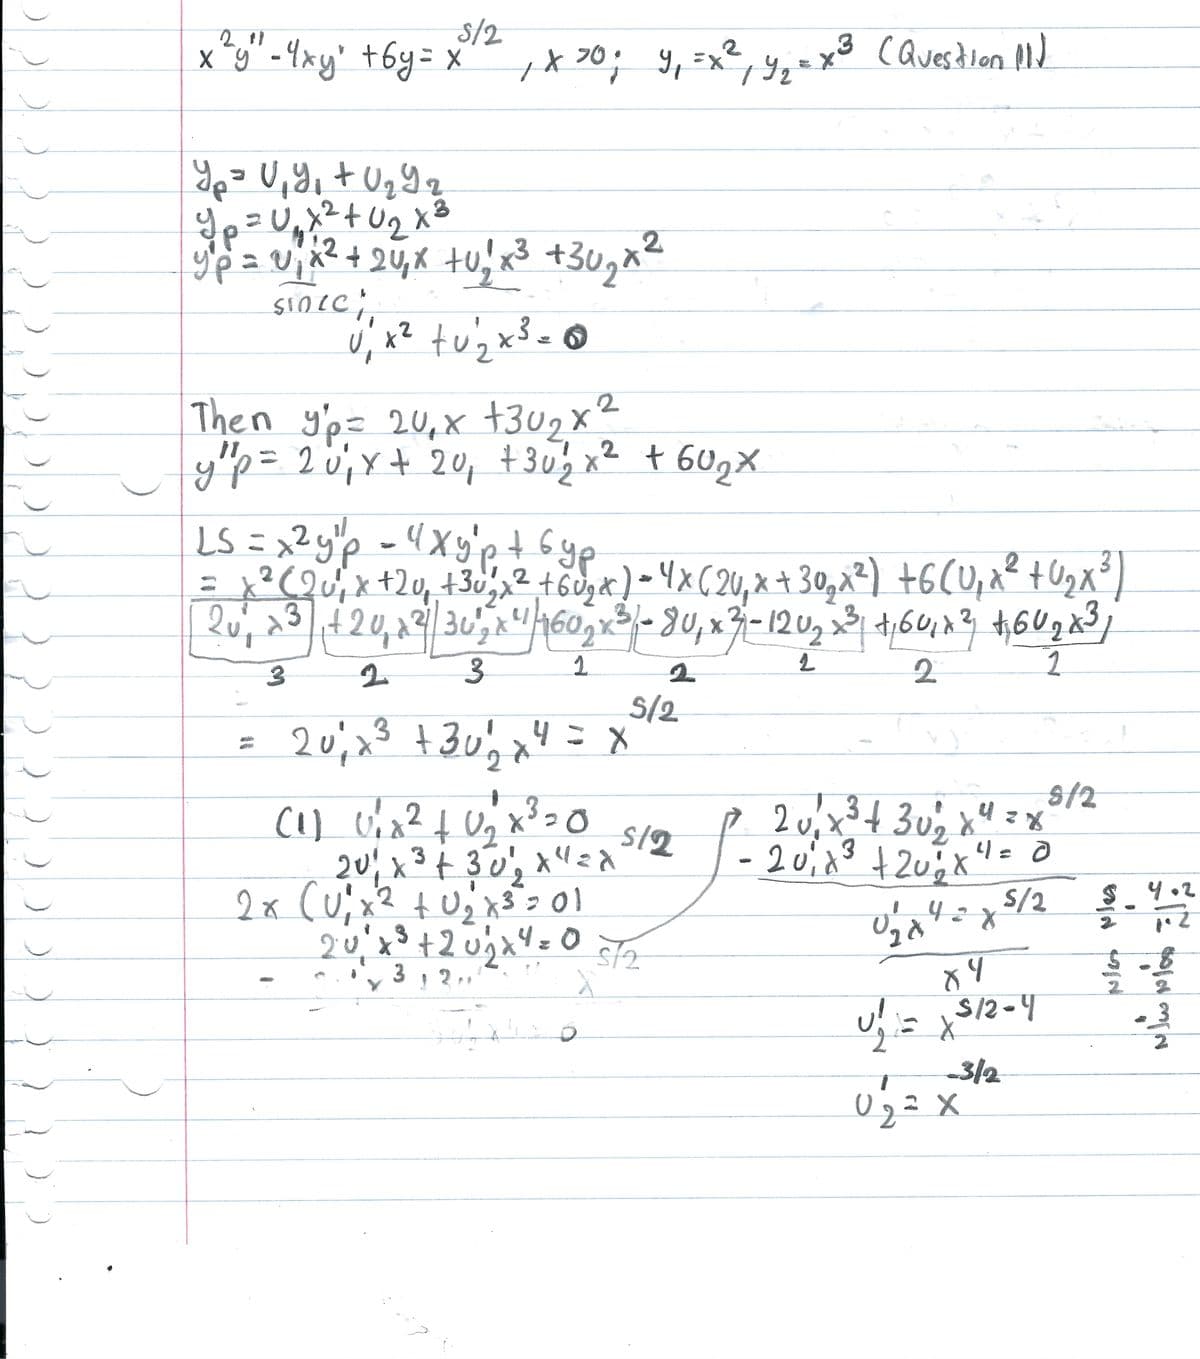 x²y'' - 4xy' + 6y = x^5/2 , x > 0 ; y₁ = x², y₂ = x³ (Question 11)
yp = U₁y₁ + U₂y₂
yp = U₁x² + U₂x³
y'p = U₁'x² + 2U₁x + U₂'x³ + 3U₂x²
since ;
U₁'x² + U₂'x³ = 0
Then y'p = 2U₁x + 3U₂x²
y''p = 2U₁'x + 2U₁ + 3U₂'x² + 6U₂x
LS = x²y''p - 4xy'p + 6yp
= x²(2U₁'x + 2U₁ + 3U₂'x² + 6U₂x) - 4x(2U₁x + 3U₂x²) + 6(U₁x² + U₂x³)
2U₁'x³ + 2U₁x² 3U₂'x⁴ + 6U₂x³ - 8U₁x² - 12U₂x³ + 6U₁x² + 6U₂x³
3 2 3 1 2 1 2 1
= 2U₁'x³ + 3U₂'x⁴ = x^5/2
(1) U₁'x² + U₂'x³ = 0
2U₁'x³ + 3U₂'x⁴ = x^5/2
2x (U₁'x² + U₂'x³ = 0)
2U₁'x³ + 2U₂'x⁴ = 0
2U₁'x³ + 3U₂'x⁴ = x^5/2
- 2U₁'x³ + 2U₂'x⁴ = 0
U₂'x⁴ = x^5/2
x⁴
U₂' = x^5/2-4
U₂' = x^-3/2
5/2 - 4·2/1·2
5/2 - 8/2
-3/2